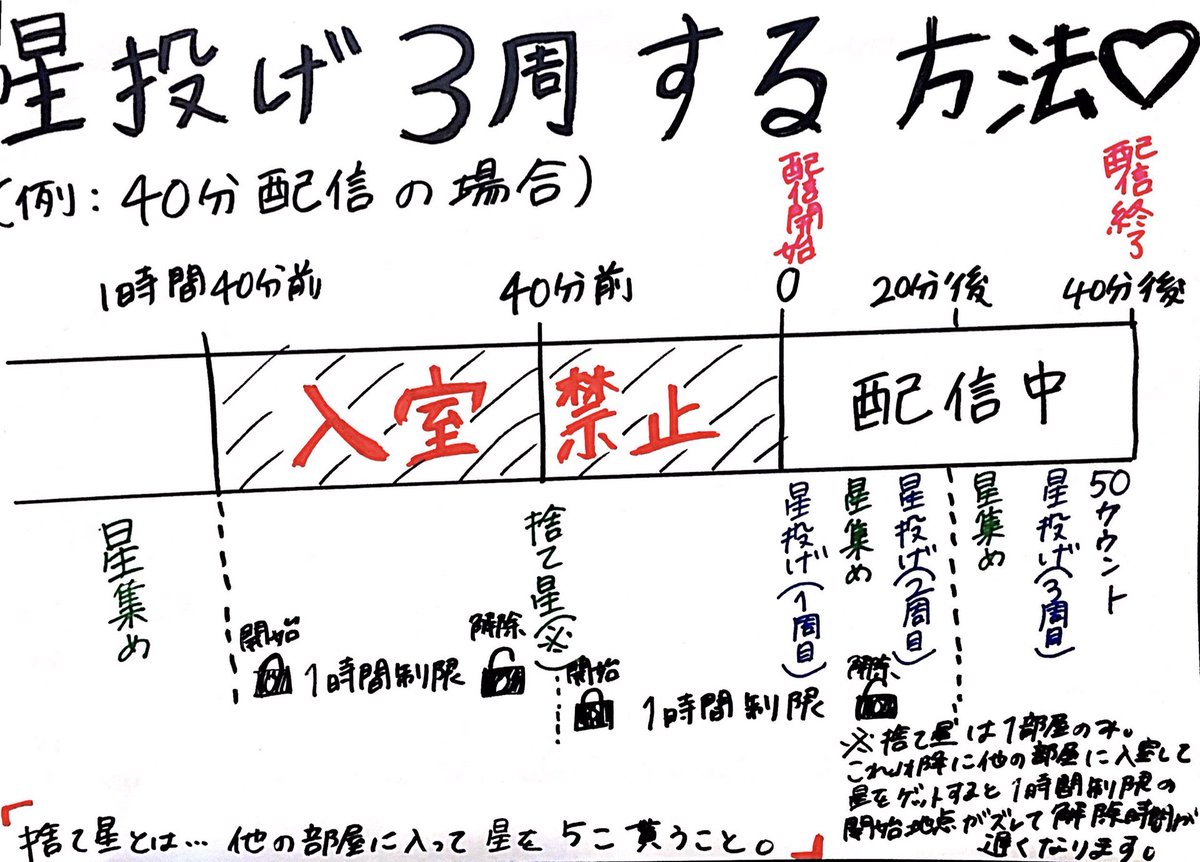 星投げ3周する方法♡
(例:40分配信の場合)
配信開始
配信終了
1時間40分前
40分前
0
20分後
40分後
入室禁止
配信中
星集め
捨て星(※)
星投げ(1周目)
星集め
星投げ(2周目)
星集め
星投げ(3周目)
50カウント
開始
1時間制限
解除
開始
1時間制限
解除
※捨て星は1部屋のみ。
これ以降に他の部屋に入室して
星をゲットすると1時間制限の
開始地点がズレて解除時間が
遅くなります。
「捨て星とは…他の部屋に入って星を5こ貰うこと。」